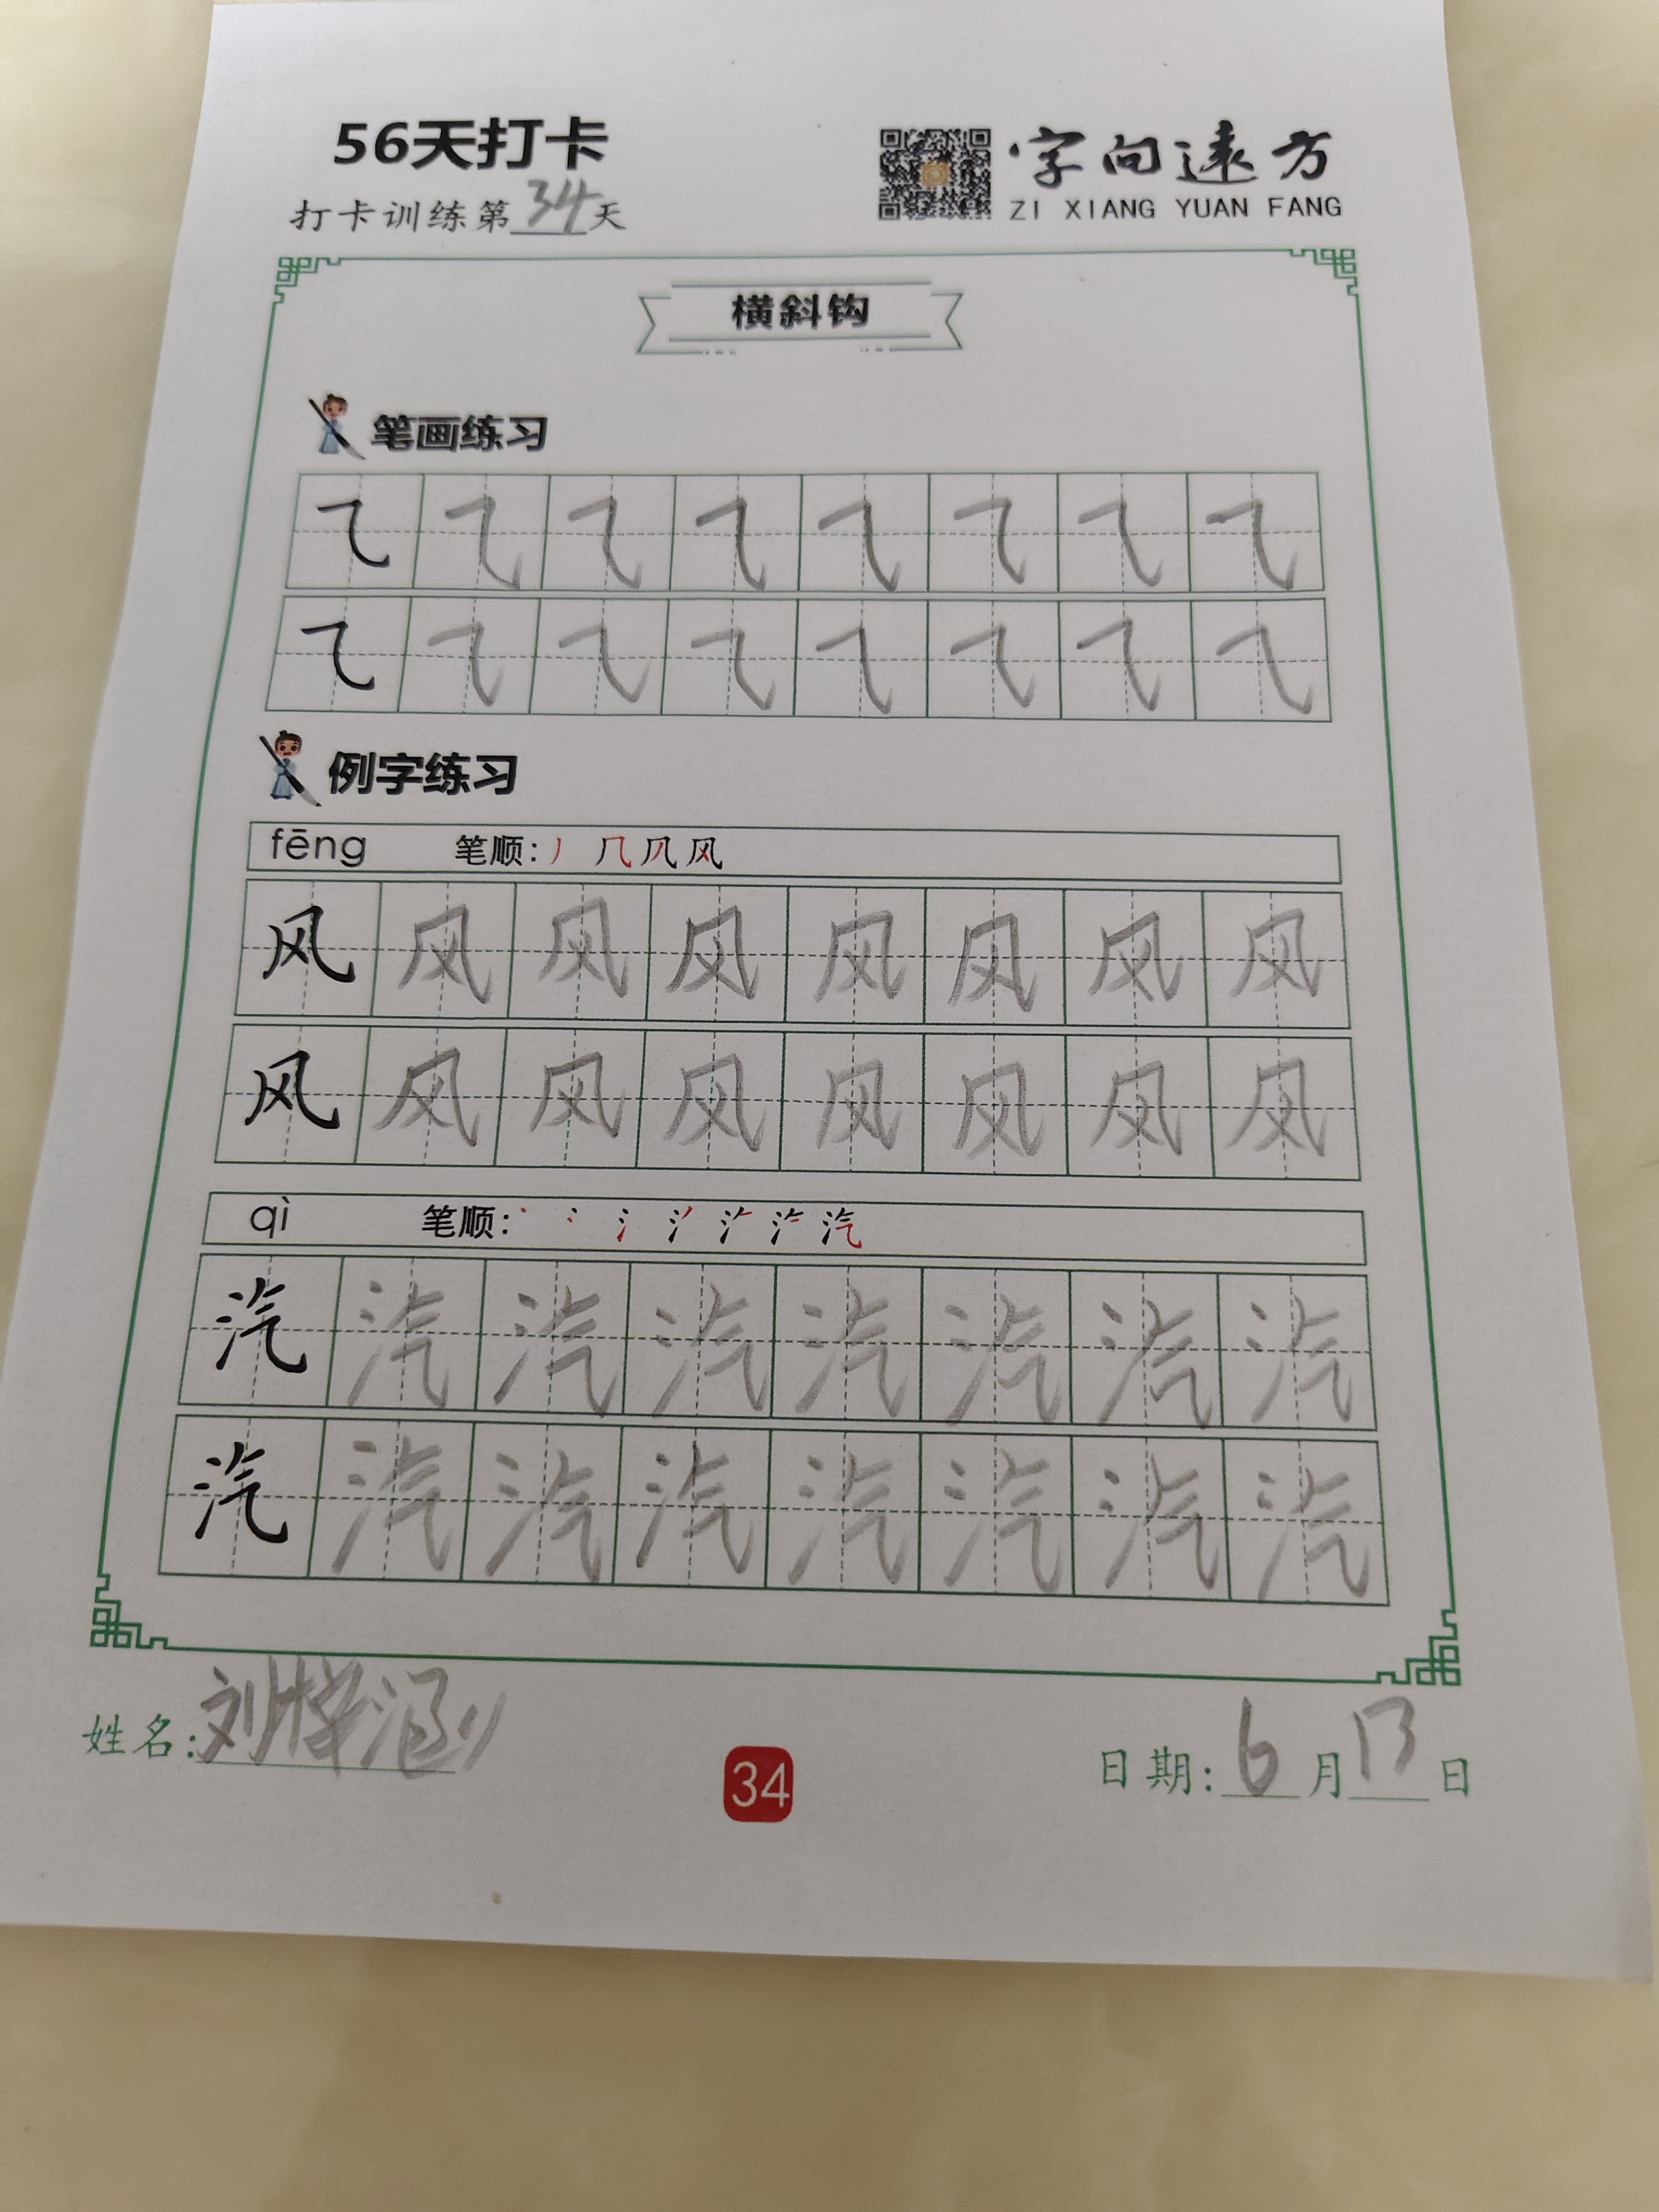 56天打卡
打卡训练第34天
字向遠方
ZI XIANG YUAN FANG
横斜钩
笔画练习
㇈ ㇈ ㇈ ㇈ ㇈ ㇈ ㇈ ㇈
㇈ ㇈ ㇈ ㇈ ㇈ ㇈ ㇈ ㇈
例字练习
fēng 笔顺:丿 几 风
风 风 风 风 风 风 风 风
风 风 风 风 风 风 风 风
qì 笔顺:丶 冫 氵 汽
汽 汽 汽 汽 汽 汽 汽 汽
汽 汽 汽 汽 汽 汽 汽 汽
姓名:刘梓涵
34
日期:6月13日